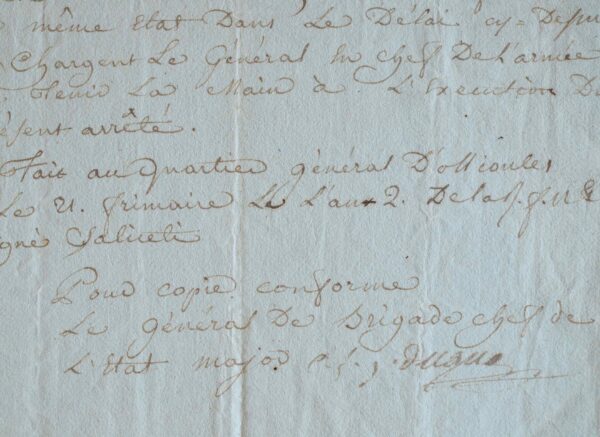 même Etat Dans Le Délai cy=
Chargent Le Général En chef De L'armée
Tenir La Main à L'Execution D
ésent arrêté.
Fait au Quartier général D'ollioules
Le 21. frimaire L'an 2. De la R. f. u
igné Saliceti
Pour copie conforme
Le général De Brigade chef de
L'Etat major
Dugua